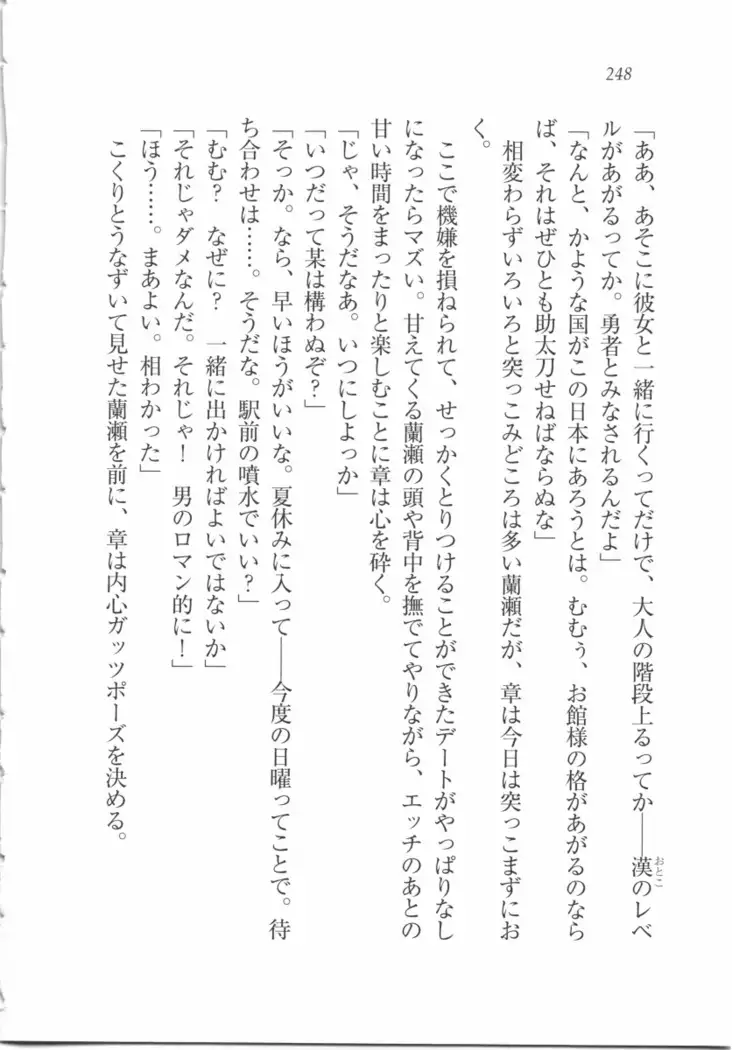 248
「ああ、あそこに彼女と一緒に行くってだけで、大人の階段上るってか――漢のレベ
おとこ
ルがあがるってか。勇者とみなされるんだよ」
「なんと、かような国がこの日本にあろうとは。むむぅ、お館様の格があがるのなら
ば、それはぜひとも助太刀せねばならぬな」
　相変わらずいろいろと突っこみどころは多い蘭瀬だが、章は今日は突っこまずにお
く。
　ここで機嫌を損ねられて、せっかくとりつけることができたデートがやっぱりなし
になったらマズい。甘えてくる蘭瀬の頭や背中を撫でてやりながら、エッチのあとの
甘い時間をまったりと楽しむことに章は心を砕く。
「じゃ、そうだなあ。いつにしよっか」
「いつだって某は構わぬぞ？」
「そっか。なら、早いほうがいいな。夏休みに入って――今度の日曜ってことで。待
ち合わせは……。そうだな。駅前の噴水でいい？」
「むむ？　なぜに？　一緒に出かければよいではないか」
「それじゃダメなんだ。それじゃ！　男のロマン的に！」
「ほう……。まあよい。相わかった」
　こくりとうなずいて見せた蘭瀬を前に、章は内心ガッツポーズを決める。